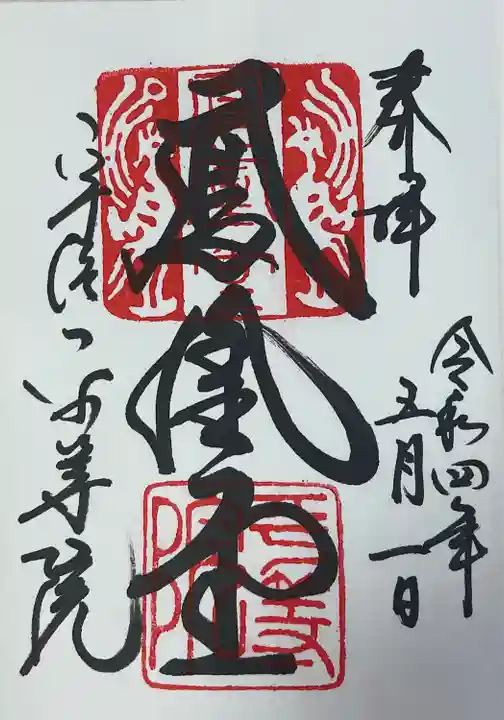 奉拝
令和四年
五月一日
鳳凰堂
宇治 平等院